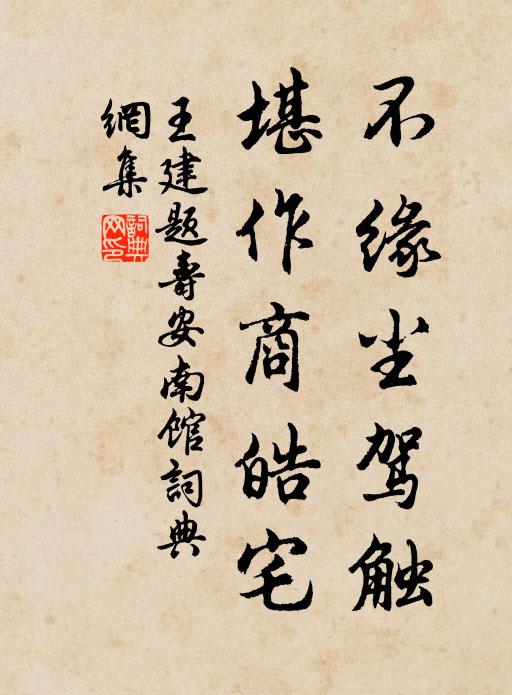 不缘尘驾触
堪作商皓宅
王建题寿安南馆詞典
網集
詞典
网印